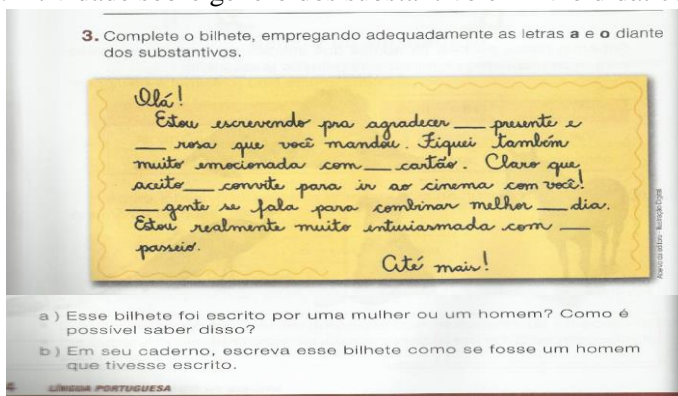 3. Complete o bilhete, empregando adequadamente as letras a e o diante
dos substantivos.
Olá!
Estou escrevendo pra agradecer ___ presente e
___ rosa que você mandou. Fiquei também
muito emocionada com ___ cartão. Claro que
aceito ___ convite para ir ao cinema com você!
___ gente se fala para combinar melhor ___ dia.
Estou realmente muito entusiasmada com ___
passeio.
Até mais!
a) Esse bilhete foi escrito por uma mulher ou um homem? Como é
possível saber disso?
b) Em seu caderno, escreva esse bilhete como se fosse um homem
que tivesse escrito.
LÍNGUA PORTUGUESA